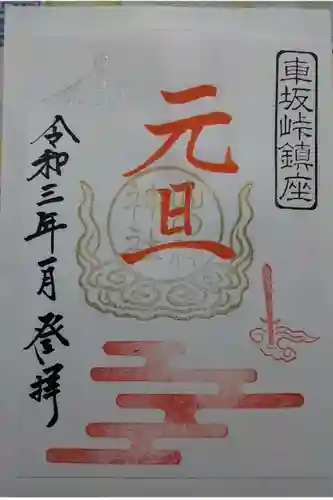 車坂峠鎮座
元旦
令和三年一月登拝